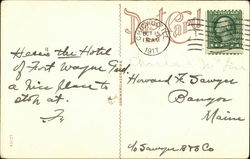 Post Card
OCT 13
1917
Here's the Hotel
of Fort Wayne Ind.
a nice place to
stop at.
Howard F. Sawyer
Bangor
Maine
c/o Sawyer B & S Co